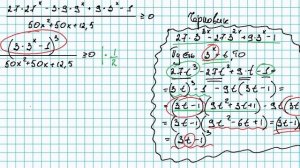 27·27ˣ - 3·9·9ˣ + 9·3ˣ - 1
50x²+50x+12,5
≥0
(3·3ˣ - 1)³
50x²+50x+12,5
≥0 | · 1/2
Черновик
27·3³ˣ - 27·3²ˣ + 9·3ˣ - 1
3ˣ = t, t>0
27t³ - 27t² + 9t - 1 =
= (3t)³ - 1 - 9t(3t - 1) =
= (3t-1)(9t²+3t+1) - 9t(3t-1)
= (3t-1)(9t²-6t+1) = (3t-1)·
= (3t-1)³